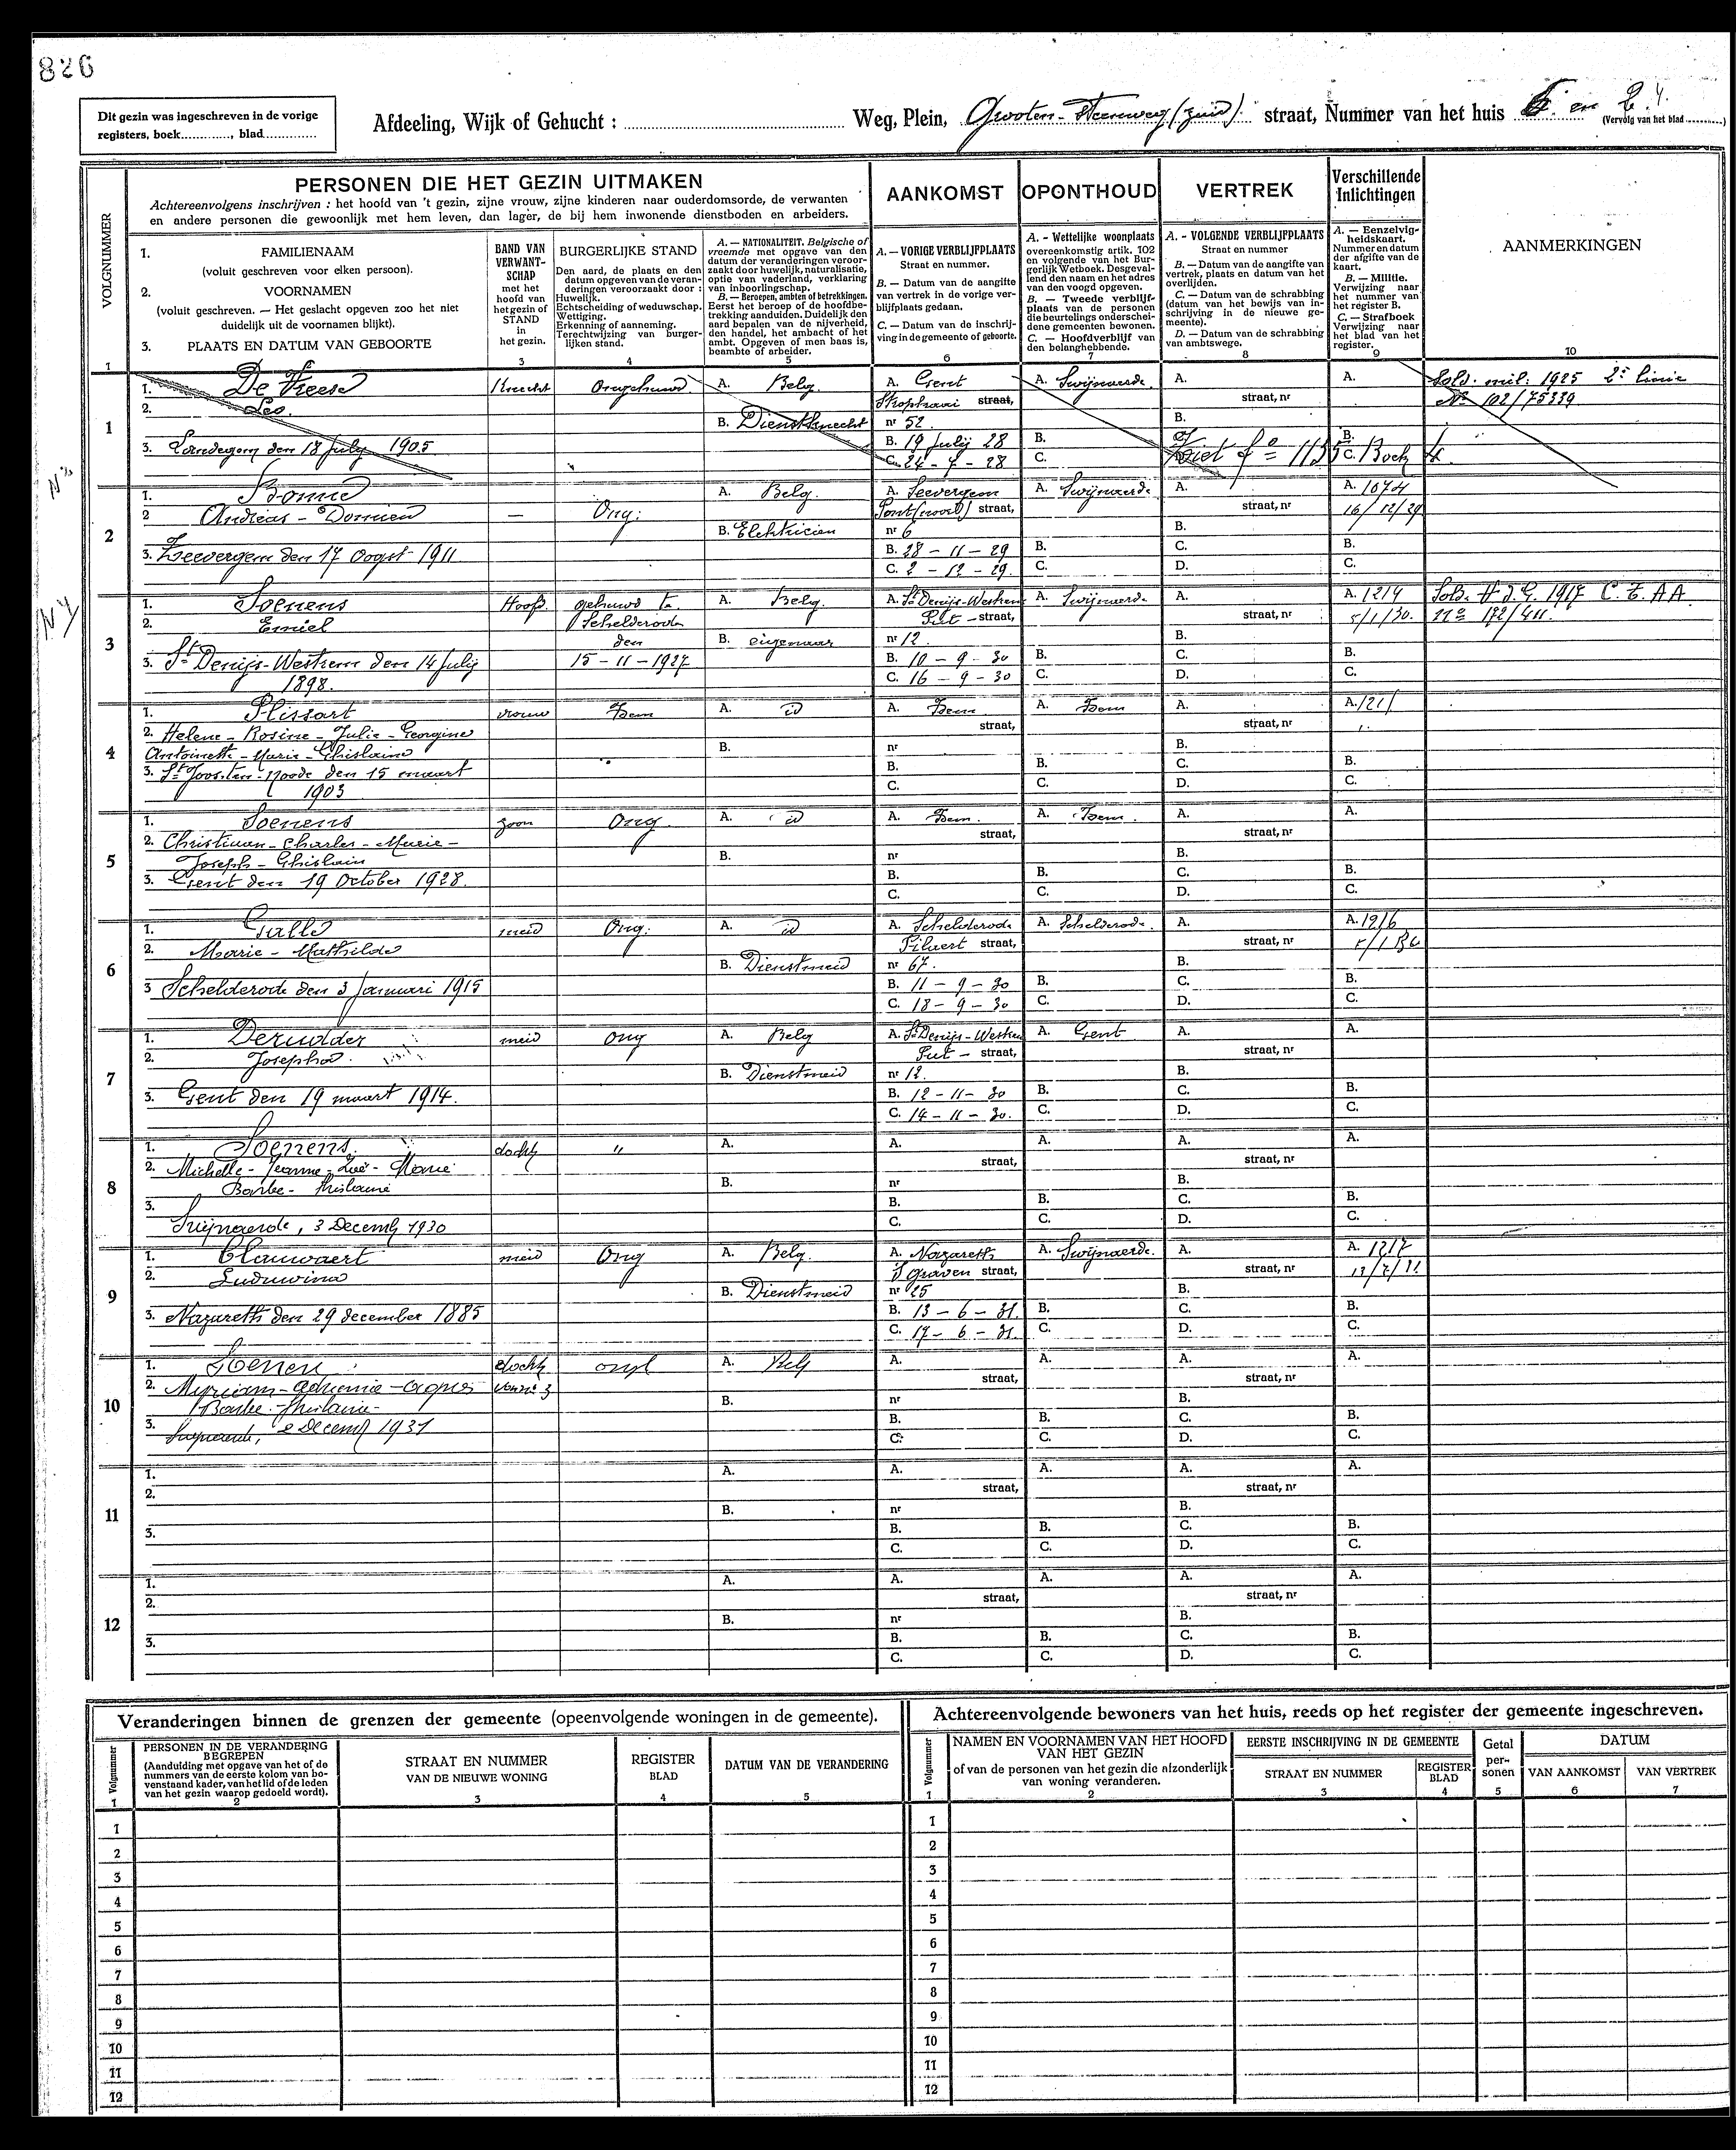 826
Dit gezin was ingeschreven in de vorige
registers, boek............, blad.............
Afdeeling, Wijk of Gehucht : ........ Weg, Plein, Grooten-Steenweg (zuid). straat, Nummer van het huis 6 en 2
(Vervolg van het blad ..........)
VOLGNUMMER
PERSONEN DIE HET GEZIN UITMAKEN
Achtereenvolgens inschrijven : het hoofd van 't gezin, zijne vrouw, zijne kinderen naar ouderdomsorde, de verwanten
en andere personen die gewoonlijk met hem leven, dan lager, de bij hem inwonende dienstboden en arbeiders.
1. FAMILIENAAM
(voluit geschreven voor elken persoon).
2. VOORNAMEN
(voluit geschreven. — Het geslacht opgeven zoo het niet
duidelijk uit de voornamen blijkt).
3. PLAATS EN DATUM VAN GEBOORTE
BAND VAN
VERWANT-
SCHAP
met het
hoofd van
het gezin of
STAND
in
het gezin.
3
BURGERLIJKE STAND
Den aard, de plaats en den
datum opgeven van de veran-
deringen veroorzaakt door :
Huwelijk.
Echtscheiding of weduwschap.
Wettiging.
Erkenning of aanneming.
Terechtwijzing van burger-
lijken stand.
4
A. — NATIONALITEIT. Belgische of
vreemde met opgave van den
datum der veranderingen veroor-
zaakt door huwelijk, naturalisatie,
optie van vaderland, verklaring
van inboorlingschap.
B. — Beroepen, ambten of betrekkingen.
Eerst het beroep of de hoofdbe-
trekking aanduiden. Duidelijk den
aard bepalen van de nijverheid,
den handel, het ambacht of het
ambt. Opgeven of men baas is,
beambte of arbeider.
5
AANKOMST
A. — VORIGE VERBLIJFPLAATS
Straat en nummer.
B. — Datum van de aangifte
van vertrek in de vorige ver-
blijfplaats gedaan.
C. — Datum van de inschrij-
ving in de gemeente of geboorte.
6
OPONTHOUD
A. - Wettelijke woonplaats
overeenkomstig artik. 102
en volgende van het Bur-
gerlijk Wetboek. Desgeval-
lend den naam en het adres
van den voogd opgeven.
B. — Tweede verblijf-
plaats van de personen
die beurtelings onderschei-
dene gemeenten bewonen.
C. — Hoofdverblijf van
den belanghebbende.
7
VERTREK
A. - VOLGENDE VERBLIJFPLAATS
Straat en nummer
B. — Datum van de aangifte van
vertrek, plaats en datum van het
overlijden.
C. — Datum van de schrabbing
(datum van het bewijs van in-
schrijving in de nieuwe ge-
meente).
D. — Datum van de schrabbing
van ambtswege.
8
Verschillende
Inlichtingen
A. — Eenzelvig-
heidskaart.
Nummer en datum
der afgifte van de
kaart.
B. — Militie.
Verwijzing naar
het nummer van
het register B.
C. — Strafboek
Verwijzing naar
het blad van het
register.
9
AANMERKINGEN
10
1
1. De Vreese Knecht Ongehuwd A. Belg. A. Gent A. Swijnaerde. A. A. Sold. mil. 1925 2e linie
2. Leo. Strophaai straat, straat, nr No 102/75339
B. Dienstknecht nr 52. B.
3. Landegem den 18 July 1905 B. 19 Julij 28 B. C. B.
C. 24 - 7 - 28 C. Ziet fo 1135 C. Boek 4.
2
1. Bonne A. Belg. A. Seevergem A. Swijnaerde A. A. 1074
2 Andreas - Domien — Ong: Pont (noord) straat, straat, nr 16/12/29
B. Elektricien nr 6 B.
3. Zeevergem den 17 Oogst 1911 B. 28 - 11 - 29 B. C. B.
C. 2 - 12 - 29. C. D. C.
3
1. Soenens Hoofd. gehuwd te A. Belg. A. St Denijs-Westrem A. Swijnaerde A. A. 1214 Sold. H. d. G. 1917 C. T. A A
2. Emiel Schelderode Put - straat, straat, nr 5/1/30. no 172/411.
den B. eigenaar nr 12. B.
3. St Denijs-Westrem den 14 July 15 - 11 - 1927 B. 10 - 9 - 30 B. C. B.
1898. C. 16 - 9 - 30 C. D. C.
4
1. Plissart vrouw Idem A. id A. Idem A. Idem A. A. 121
2. Helene - Rosine - Julie - Georgine straat, straat, nr
Antoinette - Marie - Ghislaine B. nr B.
3. St Joosten-Noode den 15 maart B. B. C. B.
1903 C. C. D. C.
5
1. Soenens zoon Ong. A. id A. Idem. A. Idem. A. A.
2. Christiaan - Charles - Marie - straat, straat, nr
Joseph - Ghislain B. nr B.
3. Gent den 19 October 1928. B. B. C. B.
C. C. D. C.
6
1. Galle meid Ong. A. id A. Schelderode A. Schelderode. A. A. 1216
2. Marie - Mathilde Pilaert straat, straat, nr 5/1/30
B. Dienstmeid nr 67. B.
3 Schelderode den 3 Januari 1915 B. 11 - 9 - 30 B. C. B.
C. 18 - 9 - 30 C. D. C.
7
1. Derudder meid ong A. Belg A. St Denijs-Westrem A. Gent A. A.
2. Josepha. Put - straat, straat, nr
B. Dienstmeid nr 12. B.
3. Gent den 19 maart 1914. B. 12 - 11 - 30 B. C. B.
C. 14 - 11 - 30. C. D. C.
8
1. Soenens. docht " A. A. A. A. A.
2. Michelle - Jeanne - Zoë - Marie straat, straat, nr
Barbe - Ghislaine B. nr B.
3. B. B. C. B.
Swijnaerde, 3 Decemb 1930 C. C. D. C.
9
1. Clauwaert meid Ong A. Belg. A. Nazareth A. Swijnaerde. A. A. 1217
2. Luduwina S'graven straat, straat, nr 13/7/31.
B. Dienstmeid nr 25 B.
3. Nazareth den 29 december 1885 B. 13 - 6 - 31. B. C. B.
C. 17 - 6 - 31. C. D. C.
10
1. Soenen docht ong A. Belg A. A. A. A.
2. Myriam - Adrienne - Agnes van no 3 straat, straat, nr
Barbe - Ghislaine - B. nr B.
3. Swijnaerde, 2 Decemb 1931 B. B. C. B.
C. C. D. C.
11
1. A. A. A. A. A.
2. straat, straat, nr
B. nr B.
3. B. B. C. B.
C. C. D. C.
12
1. A. A. A. A. A.
2. straat, straat, nr
B. nr B.
3. B. B. C. B.
C. C. D. C.
Veranderingen binnen de grenzen der gemeente (opeenvolgende woningen in de gemeente).
Volgnummer
1
PERSONEN IN DE VERANDERING
BEGREPEN
(Aanduiding met opgave van het of de
nummers van de eerste kolom van bo-
venstaand kader, van het lid of de leden
van het gezin waarop gedoeld wordt).
2
STRAAT EN NUMMER
VAN DE NIEUWE WONING
3
REGISTER
BLAD
4
DATUM VAN DE VERANDERING
5
1
2
3
4
5
6
7
8
9
10
11
12
Achtereenvolgende bewoners van het huis, reeds op het register der gemeente ingeschreven.
Volgnummer
1
NAMEN EN VOORNAMEN VAN HET HOOFD
VAN HET GEZIN
of van de personen van het gezin die afzonderlijk
van woning veranderen.
2
EERSTE INSCHRIJVING IN DE GEMEENTE
STRAAT EN NUMMER
3
REGISTER
BLAD
4
Getal
per-
sonen
5
DATUM
VAN AANKOMST
6
VAN VERTREK
7
1
2
3
4
5
6
7
8
9
10
11
12